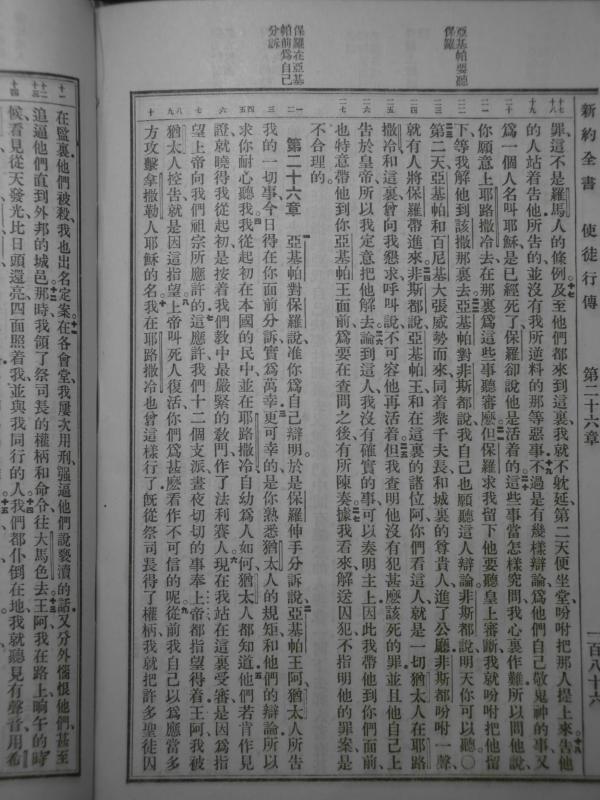 新約全書 使徒行傳 第二十六章 一百八十六
亞基帕要聽
保羅
保羅在亞基
帕前爲自己
分訴
罪這不是羅馬人的條例及至他們都來到這裏我就不躭延第二天便坐堂吩咐把那人提上來告他
的人站着告他所告的並沒有我所逆料的那等惡事不過是有幾樣辯論爲他們自己敬鬼神的事又
爲一個人名叫耶穌是已經死了保羅卻說他是活着的這些事當怎樣究問我心裏作難所以問他說
你願意上耶路撒冷去在那裏爲這些事聽審麽但保羅求我留下他要聽皇上審斷我就吩咐把他留
下等我解他到該撒那裏去亞基帕對非斯都說我自己也願聽這人辯論非斯都說明天你可以聽〇
第二天亞基帕和百尼基大張威勢而來同着衆千夫長和城裏的尊貴人進了公廳非斯都吩咐一聲
就有人將保羅帶進來非斯都說亞基帕王和在這裏的諸位阿你們看這人就是一切猶太人在耶路
撒冷和這裏曾向我懇求呼叫說不可容他再活着但我查明他沒有犯甚麽該死的罪並且他自己上
告於皇帝所以我定意把他解去論到這人我沒有確實的事可以奏明主上因此我帶他到你們面前
也特意帶他到你亞基帕王面前爲要在查問之後有所陳奏據我看來解送囚犯不指明他的罪案是
不合理的
第二十六章 亞基帕對保羅說准你爲自己辯明於是保羅伸手分訴說亞基帕王阿猶太人所告
我的一切事今日得在你面前分訴實爲萬幸更可幸的是你熟悉猶太人的規矩和他們的辯論所以
求你耐心聽我我從起初在本國的民中並在耶路撒冷自幼爲人如何猶太人都知道他們若肯作見
證就曉得我從起初是按着我們教中最嚴緊的教門作了法利賽人現在我站在這裏受審是因爲指
望上帝向我們祖宗所應許的這應許我們十二個支派晝夜切切的事奉上帝都指望得着王阿我被
猶太人控告就是因這指望上帝叫死人復活你們爲甚麽看作不可信的呢從前我自己以爲應當多
方攻擊拿撒勒人耶穌的名我在耶路撒冷也曾這樣行了旣從祭司長得了權柄我就把許多聖徒囚
在監裏他們被殺我也出名定案在各會堂我屢次用刑强逼他們說褻瀆的話又分外惱恨他們甚至
追逼他們直到外邦的城邑那時我領了祭司長的權柄和命令往大馬色去王阿我在路上晌午的時
候看見從天發光比日頭還亮四面照着我並與我同行的人我們都仆倒在地我就聽見有聲音用希